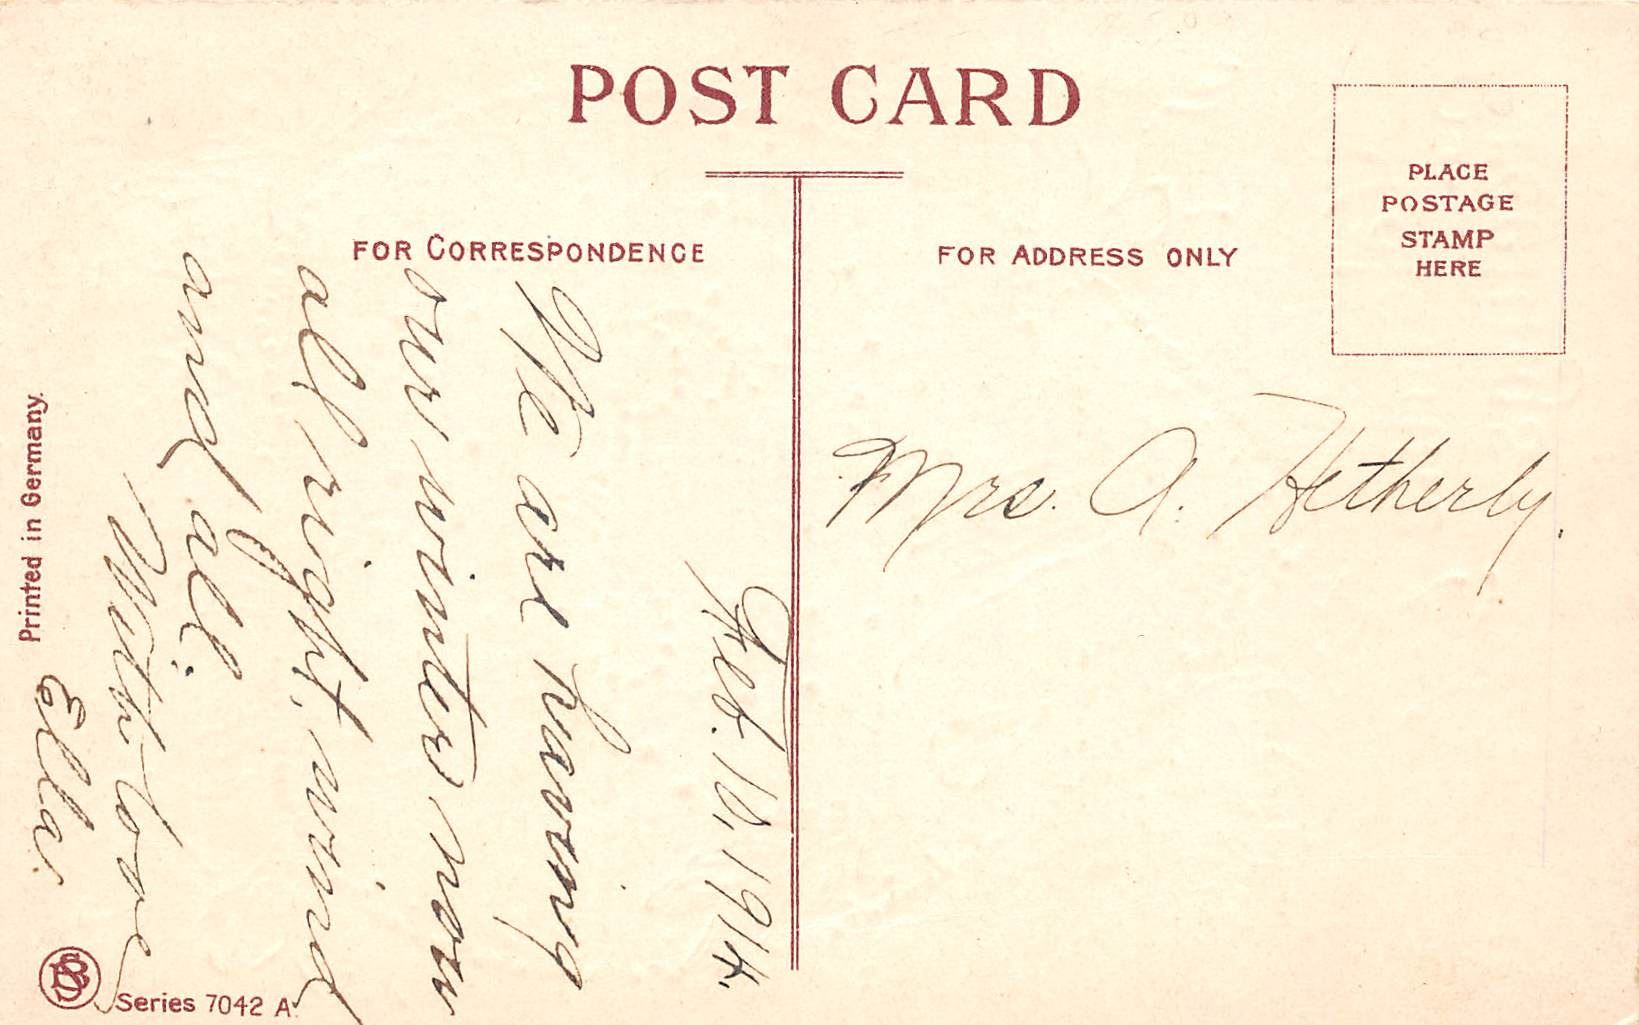 POST CARD
FOR CORRESPONDENCE
Feb. 10, 1914.
We are having
our winter now
all right, wind
and all.
With love
Ella.
FOR ADDRESS ONLY
PLACE
POSTAGE
STAMP
HERE
Mrs. A. Hetherly.
Printed in Germany.
Series 7042 A.